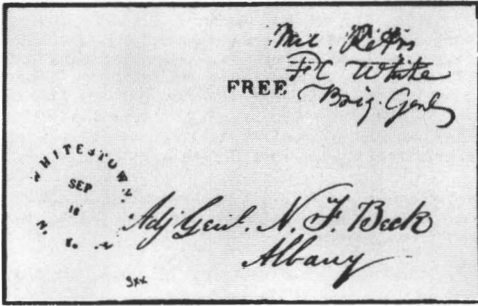 Mil. Retns
F C White
FREE
Brig. Genl
WHITESTOWN.
SEP
N. Y.
Adj Genl. N. F. Beck
Albany